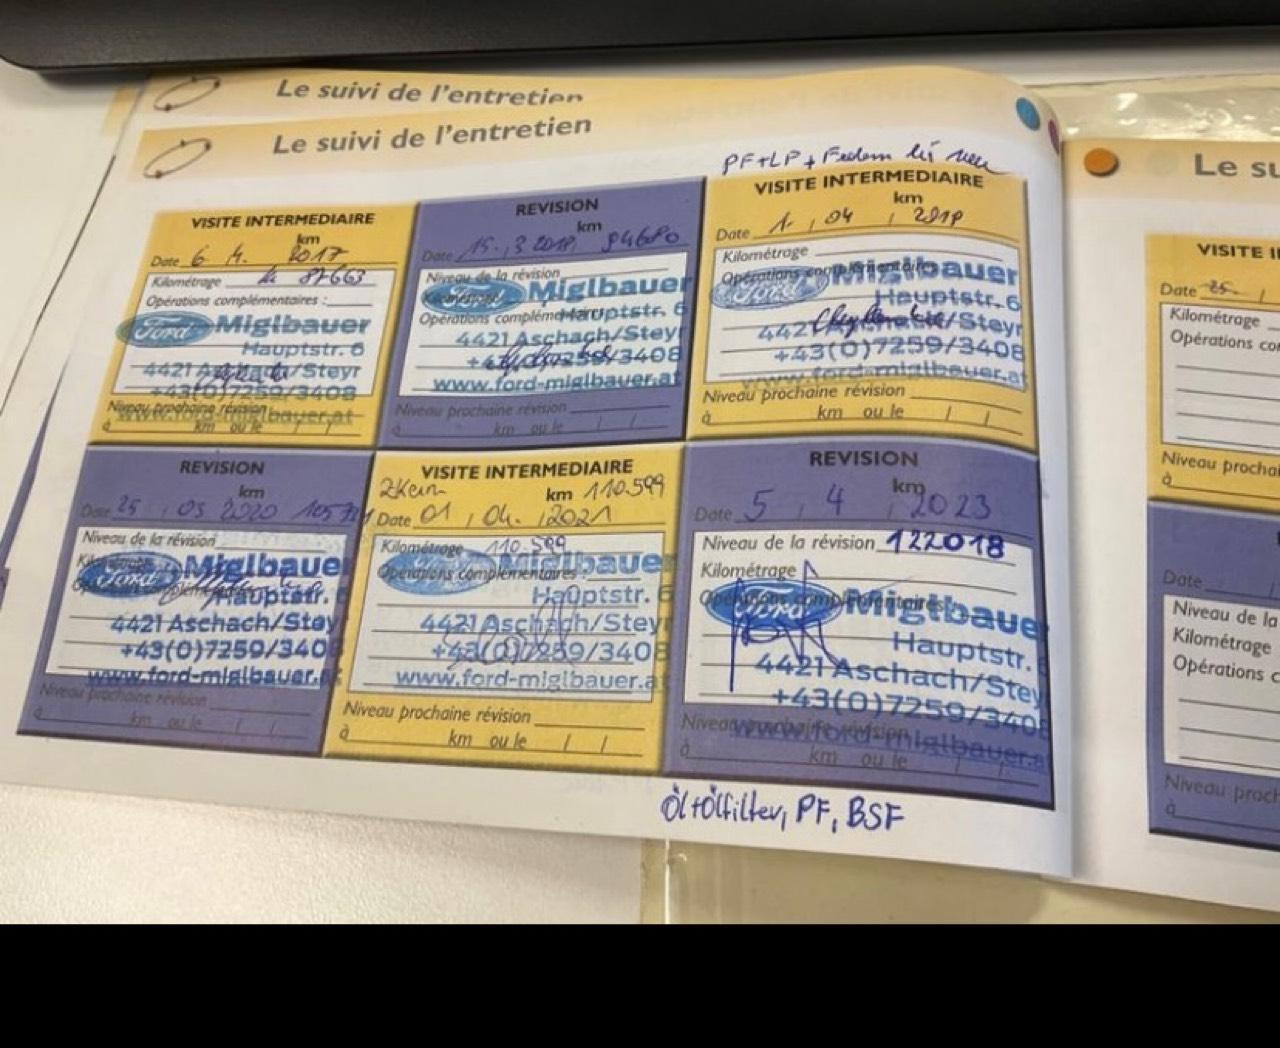 Le suivi de l'entretien
Le suivi de l'entretien
PF+LP+
VISITE INTERMEDIAIRE
km
Date 6 4. 2017
Kilométrage 87663
Opérations complémentaires :
Ford Miglbauer
Hauptstr. 6
4421 Aschach/Steyr
+43(0)7259/3408
www.ford-miglbauer.at
Niveau prochaine révision
à km ou le / /
REVISION
km
Date 15. 3 2018 94680
Niveau de la révision
Kilométrage
Opérations complémentaires
Miglbauer
Hauptstr. 6
4421 Aschach/Steyr
+43(0)7259/3408
www.ford-miglbauer.at
Niveau prochaine révision
à km ou le / /
VISITE INTERMEDIAIRE
km
Date 1. , 04 ,
Kilométrage
Opérations complémentaires
Ford Miglbauer
Hauptstr. 6
4421 Aschach/Steyr
+43(0)7259/3408
www.ford-miglbauer.at
Niveau prochaine révision
à km ou le / /
REVISION
km
Date 25 , 03 2020
Niveau de la révision
Kilométrage
Ford Miglbauer
Hauptstr. 6
4421 Aschach/Stey
+43(0)7259/3408
www.ford-miglbauer.at
Niveau prochaine révision
à km ou le / /
VISITE INTERMEDIAIRE
km 110.599
Date 01 , 04. , 2021
Kilométrage 110.599
Opérations complémentaires :
Ford Miglbauer
Hauptstr. 6
4421 Aschach/Steyr
+43(0)7259/3408
www.ford-miglbauer.at
Niveau prochaine révision
à km ou le / /
REVISION
km
Date 5 , 4 , 2023
Niveau de la révision 122018
Kilométrage
Opérations complémentaires
Ford Miglbauer
Hauptstr. 6
4421 Aschach/Stey
+43(0)7259/3408
www.ford-miglbauer.at
Niveau prochaine révision
à km ou le / /
Öl+Ölfilter, PF, BSF
Le su
VISITE I
Date 25.
Kilométrage
Opérations co
Niveau procha
à
Date
Niveau de la
Kilométrage
Opérations c
Niveau proch
à